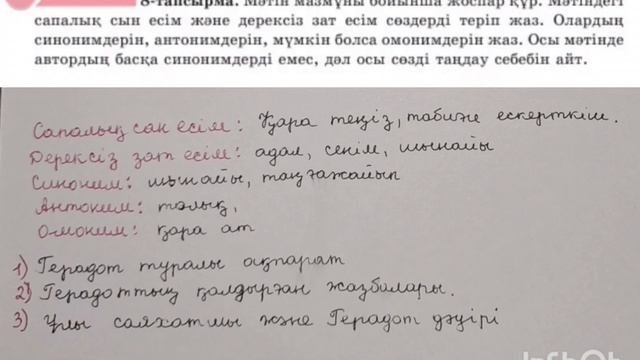 8-тапсырма. Мәтін мазмұны бойынша жоспар құр. Мәтіндегі
сапалық сын есім және дерексіз зат есім сөздерді теріп жаз. Олардың
синонимдерін, антонимдерін, мүмкін болса омонимдерін жаз. Осы мәтінде
автордың басқа синонимдерді емес, дәл осы сөзді таңдау себебін айт.
Сапалық сан есім: Қара теңіз, табиғи ескерткіш.
Дерексіз зат есім: адал, сенім, шынайы
Синоним: шынайы, таңғажайып
Антоним: толық,
Омоним: қара ат
1) Герадот туралы ақпарат
2) Герадоттың қалдырған жазбалары.
3) Ұлы саяхатшы және Герадот дәуірі